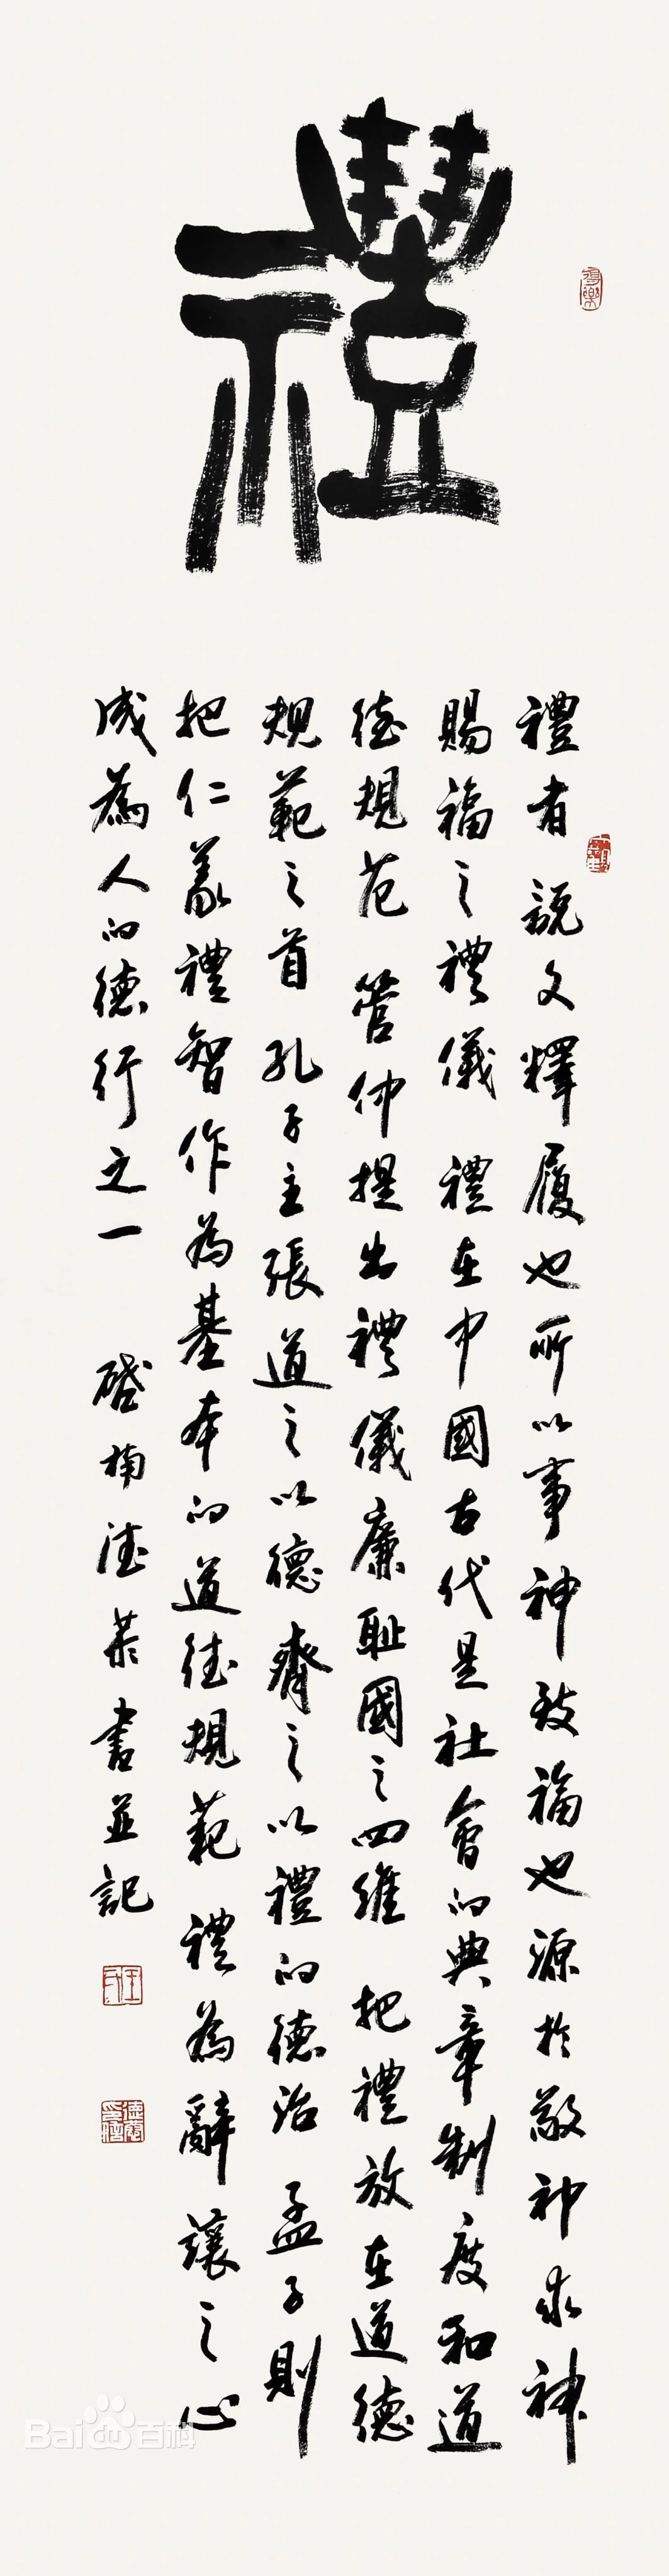 禮
禮者 說文釋履也所以事神致福也源於敬神求神
賜福之禮儀 禮在中國古代是社會的典章制度和道
德規范 管仲提出禮儀廉耻國之四維 把禮放在道德
規範之首 孔子主張道之以德齊之以禮的德治 孟子則
把仁義禮智作為基本的道德規範 禮為辭讓之心
成為人的德行之一 啓楠德 書並記
Bai 百科